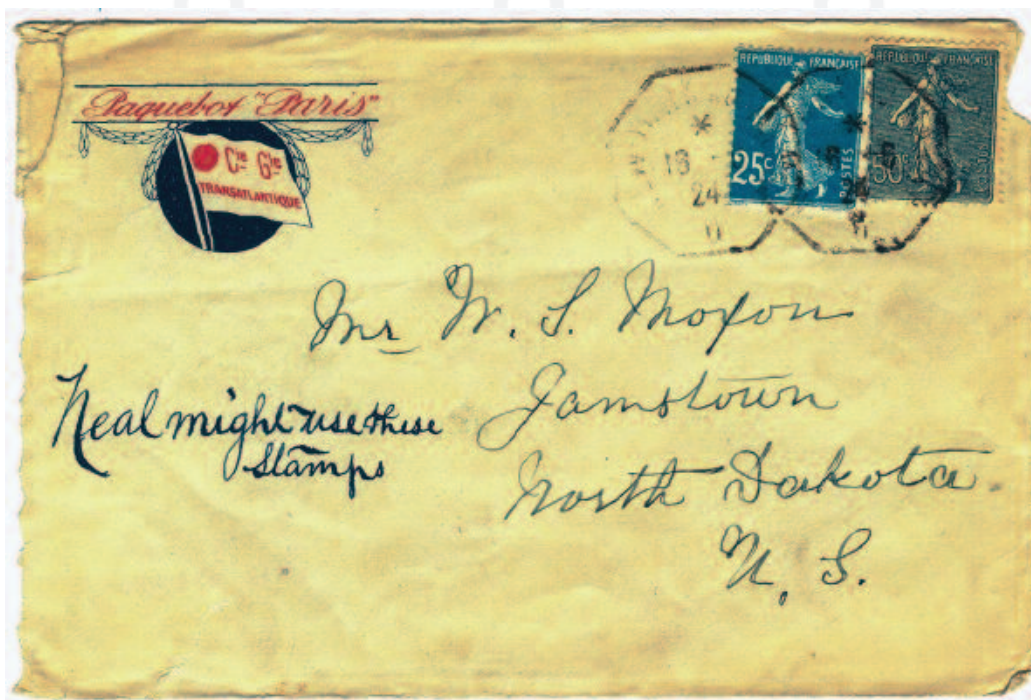 Paquebot "Paris"
Cie Gle
TRANSATLANTIQUE
REPUBLIQUE FRANÇAISE
25c
POSTES
REPUBLIQUE FRANÇAISE
50c
24
24
Mr W. S. Moxon
Jamstown
North Dakota
U. S.
Neal might use these
stamps